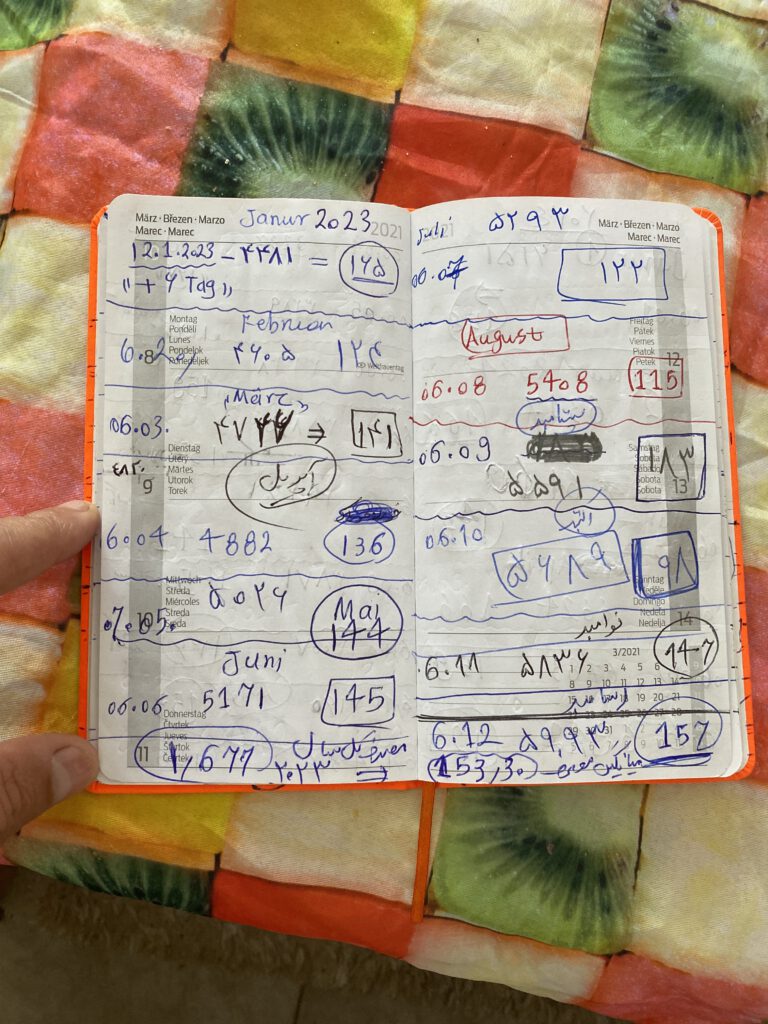 März · Březen · Marzo Janur 2023 2021
Marec · Marec
12.1.2023 - ۴۴۸۱ = ۱۶۵
Montag
Pondělí
Lunes
Pondelok
Ponedeljek
8
6.02 ۴۶۰۵ ۱۲۴
"März"
06.03. ۴۷ ⇒ ۱۴۱
Dienstag
Úterý
Martes
Utorok
Torek
9
آپریل
6.04 4882 136
Mittwoch
Středa
Miércoles
Streda
Sreda
10
05. ۵۰۲۶ Mai 144
Juni
06.06 5171 145
Donnerstag
Čtvrtek
Jueves
Štvrtok
Četrtek
11
1,677
۲۰۲۳
Juli ۵۲۹۳ März · Březen · Marzo
Marec · Marec
06.07 ۱۲۲
August
Freitag
Pátek
Viernes
Piatok
Petek
12
06.08 5408 115
06.09 ۵۵۹۱ ۱۸۳
Samstag
Sobota
Sábado
Sobota
Sobota
13
06.10 ۵۶۸۹ ۹۸
Sonntag
Neděle
Domingo
Nedeľa
Nedelja
14
نوامبر
3/2021
6.11 ۵۸۳۶ 147
6.12 157
153,30